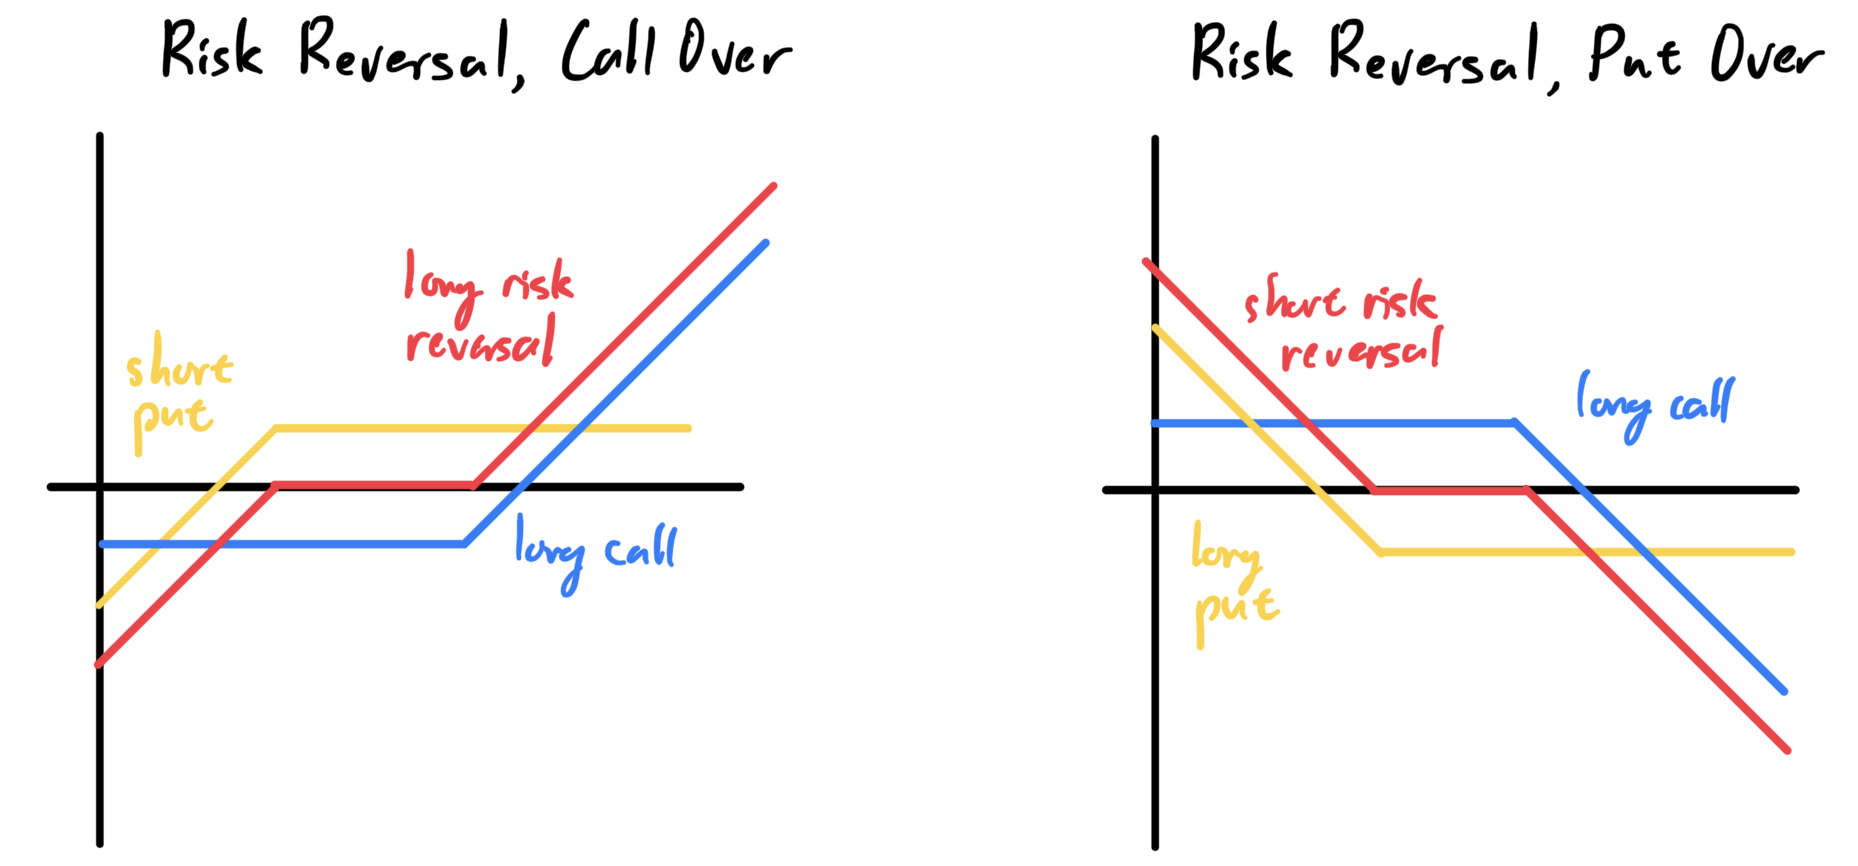 Risk Reversal, Call Over
long risk
reversal
short
put
long call
Risk Reversal, Put Over
short risk
reversal
long call
long
put